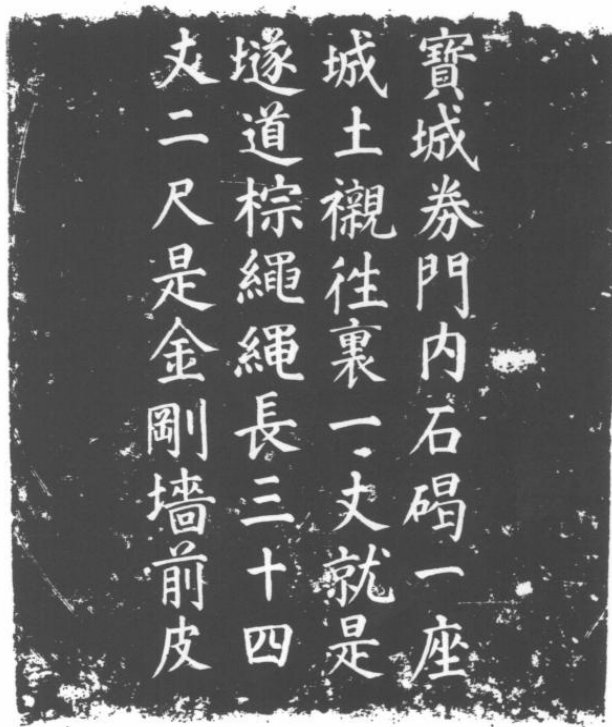 寶城券門内石碣一座
城土襯徃裏一丈就是
墜道棕繩繩長三十四
丈二尺是金剛墻前皮